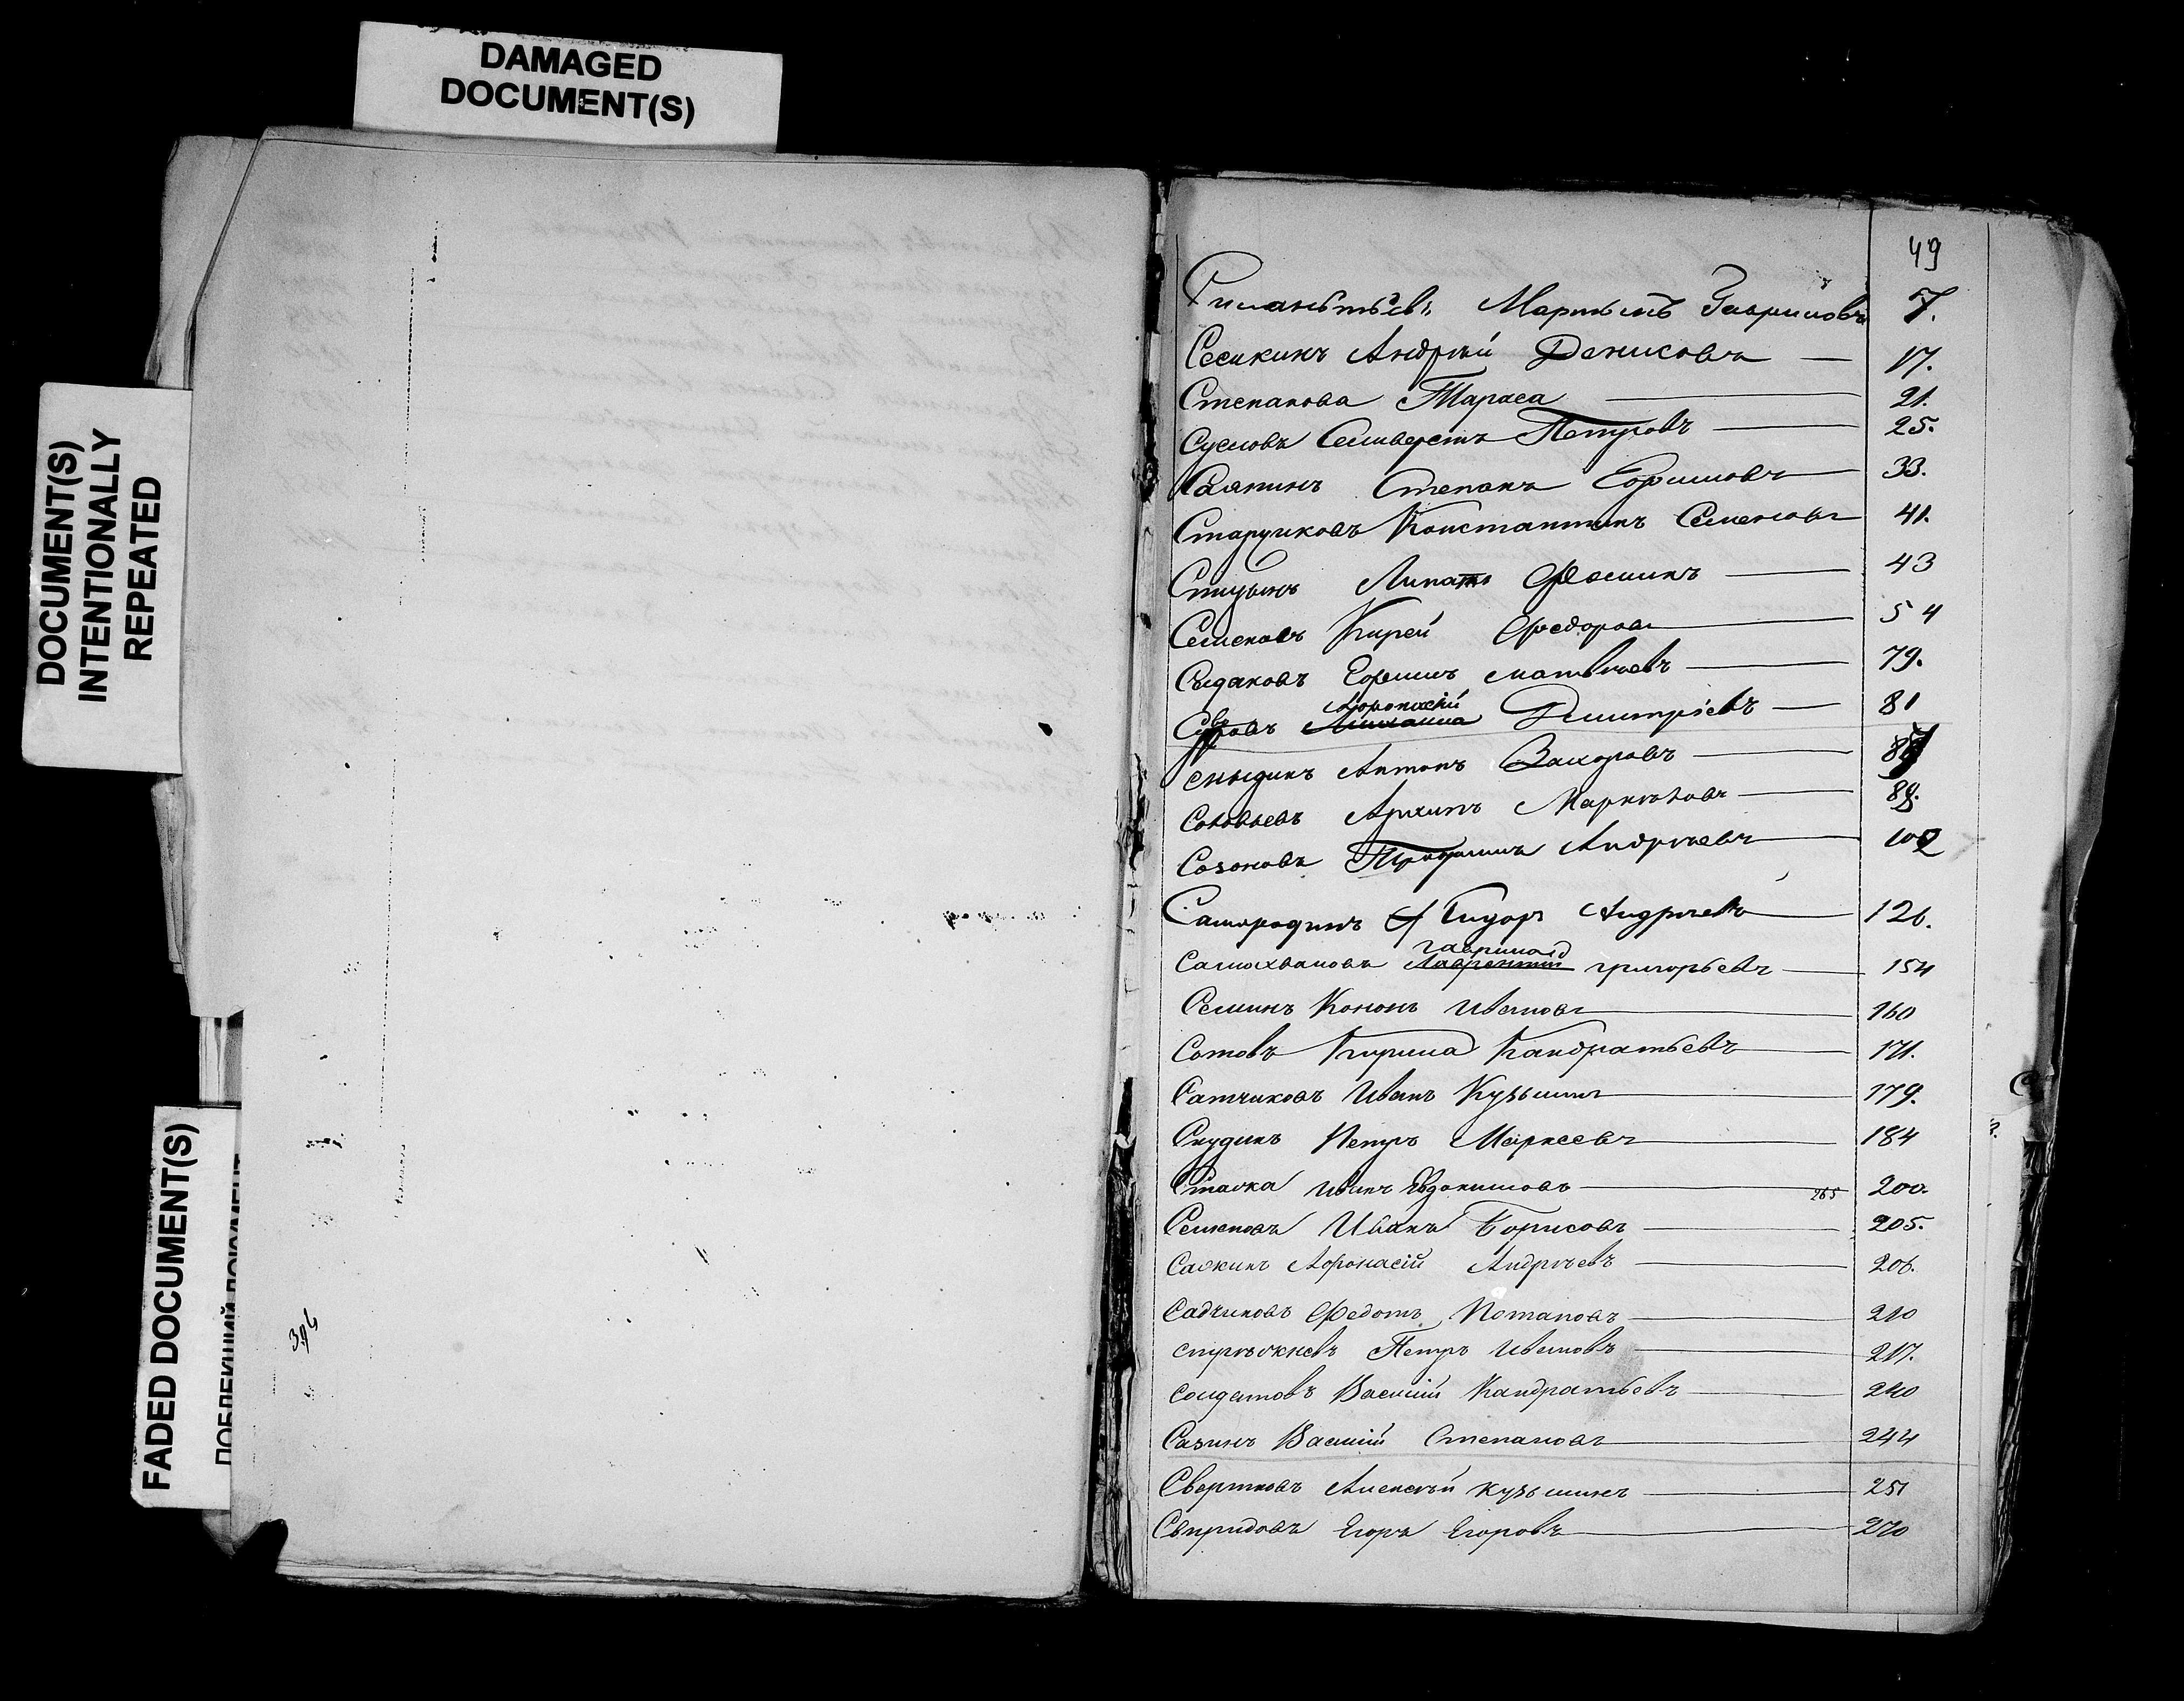 DAMAGED
DOCUMENT(S)
DOCUMENT(S)
INTENTIONALLY
REPEATED
FADED DOCUMENT(S)
49
Мартынъ Гавриловъ 7.
Андрѣй Денисовъ — 17.
Степанова Тараса 21.
Сусловъ Селиверстъ Петровъ 25.
Саяпинъ Степанъ Ефимовъ 33.
Старчиковъ Константинъ Семеновъ 41.
Липатъ Фоминъ 43
Семеновъ Кирей Федоровъ 54
Сыдаковъ Ефимъ Матвѣевъ 79.
Афонасій
Дмитріевъ — 81
Антонъ Захаровъ
Соловьевъ Архипъ Маркѣловъ 89.
Созоновъ Трофимъ Андрѣевъ 102
Самародинъ Сидоръ Андрѣевъ 126.
Гаврила
Самохваловъ Лаврентій григорьевъ 154
Семинъ Кононъ Ивановъ 160
Сотовъ Кирила Кандратьевъ 171.
Сатчиковъ Иванъ Кузьминъ 179.
Скудинъ Петръ Маркеевъ 184
Иванъ Евдокимовъ 265 200.
Семеновъ Иванъ Борисовъ 205.
Савкинъ Афонасій Андрѣевъ 206.
Садчиковъ Федотъ Потаповъ 210
Петръ Ивановъ 217.
Солдатовъ Василій Кандратьевъ 240
Сазинъ Василій Степановъ 244
Алексѣй кузьминъ 251
Свиридовъ Егоръ Егоровъ 270